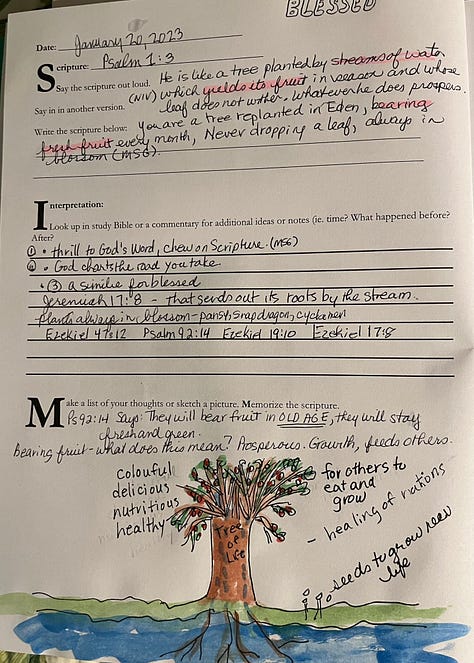 BLESSED
Date: January 20, 2023
Scripture: Psalm 1:3
Say the scripture out loud. He is like a tree planted by streams of water
(NIV) which yields its fruit in season and whose
Say in in another version. leaf does not wither. Whatever he does prospers.
Write the scripture below: You are a tree replanted in Eden, bearing
fresh fruit every month, Never dropping a leaf, always in
blossom (MSG).
Interpretation:
Look up in study Bible or a commentary for additional ideas or notes (ie. time? What happened before?
After?
① • thrill to God's Word, chew on Scripture. (MSG)
• God charts the road you take
• (3) a simile for blessed
Jeremiah 17:8 - that sends out its roots by the stream.
plants always in blossom - pansy, snapdragon, cyclamen
Ezekiel 47:12 Psalm 92:14 Ezekiel 19:10 Ezekiel 17:8
Make a list of your thoughts or sketch a picture. Memorize the scripture.
Ps 92:14 Says: They will bear fruit in OLD AGE, they will stay
fresh and green.
Bearing fruit - what does this mean? Prosperous. Growth, feeds others.
colourful
delicious
nutritious
healthy
Tree
of
Life
for others to
eat and
grow
- healing of nations
seeds to grow new
life